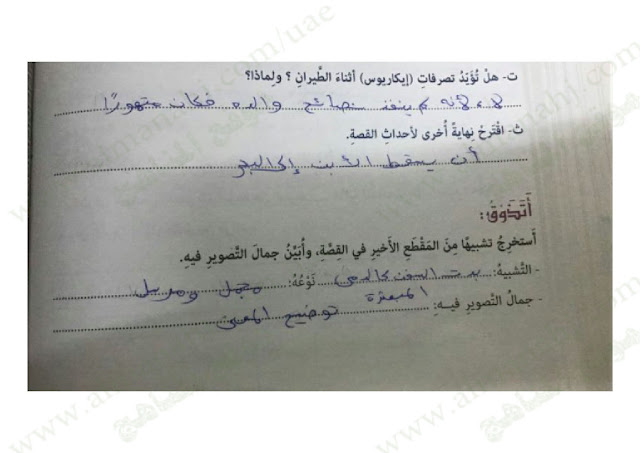 ت- هلْ تُؤَيّدُ تصرفاتِ (إيكاريوس) أثناءَ الطَّيرانِ ؟ ولِماذا؟
لا ، لأنه لم ينفذ نصائح والده فكان متهورًا
ث- اقْترحْ نِهايةً أُخرى لأحداثِ القصةِ.
أن يسقط الابن إلى البحر
أَتَذَوَّقُ:
أَستخرِجُ تشبيهًا مِنَ المَقْطَعِ الأَخيرِ في القِصَّةِ، وأُبَيِّنُ جمالَ التَّصويرِ فيهِ.
- التَّشبيهُ: بدت السفن كالدمى المبعثرة نَوْعُهُ: مجمل ومرسل
- جمالُ التَّصويرِ فيـهِ: توضيح المعنى